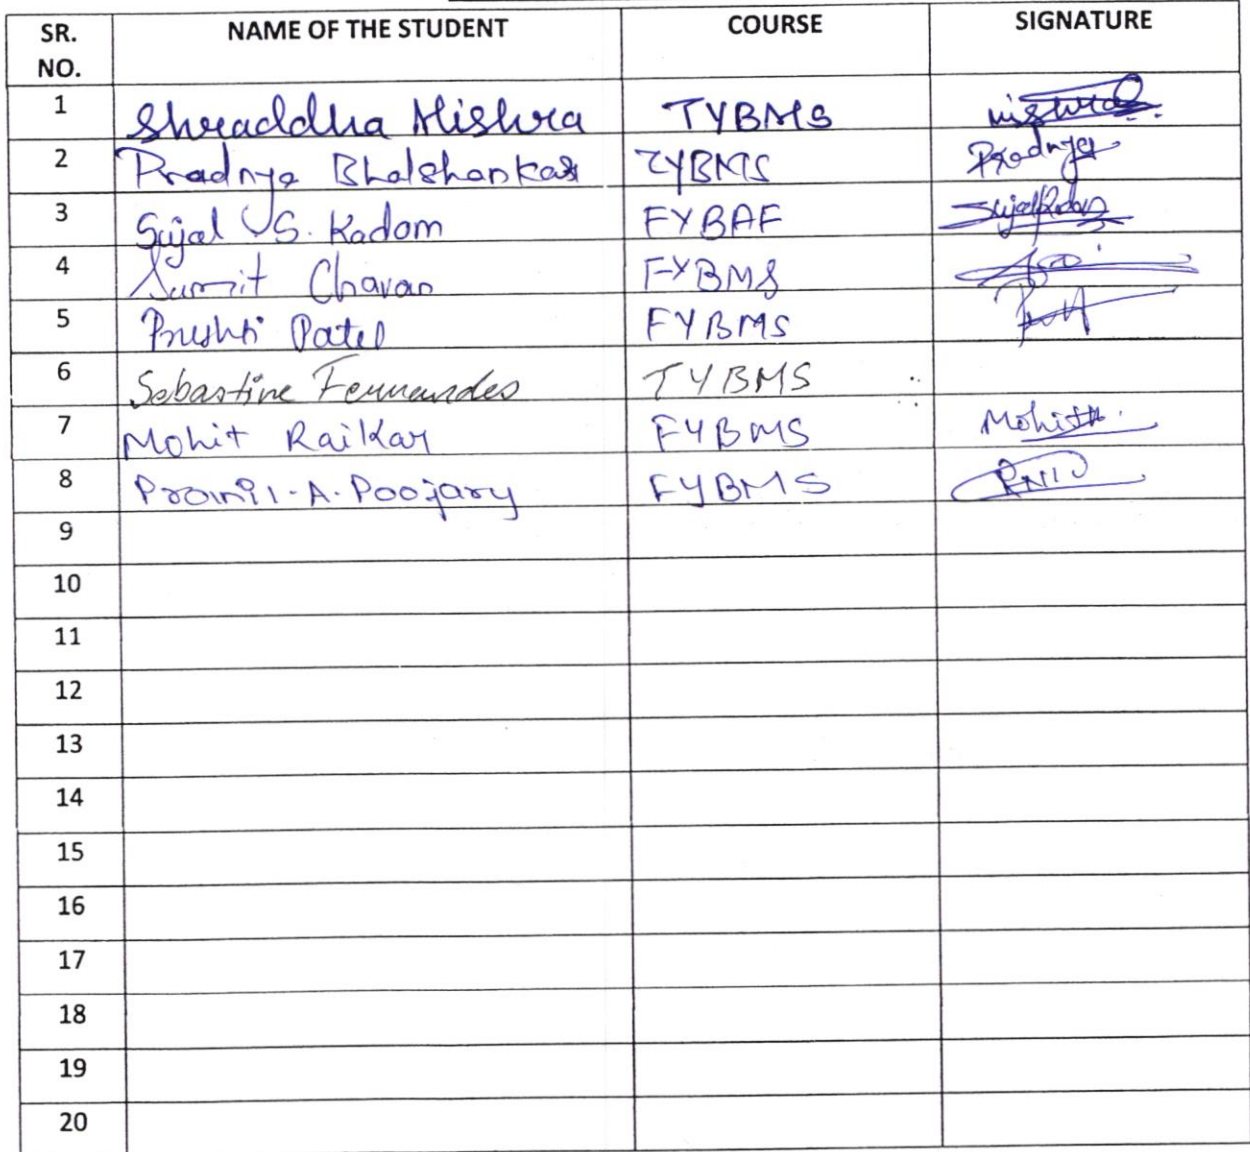 SR. NO. NAME OF THE STUDENT COURSE SIGNATURE
1 Shraddha Mishra TYBMS Mishra
2 Pradnya Bhalshankar TYBMS Pradnya
3 Sujal S. Kadam FYBAF SujalKadam
4 Sumit Chavan FYBMS
5 Prushti Patel FYBMS
6 Sebastine Fernandes TYBMS
7 Mohit Raikar FYBMS Mohit
8 Pramil.A.Poojary FYBMS
9
10
11
12
13
14
15
16
17
18
19
20